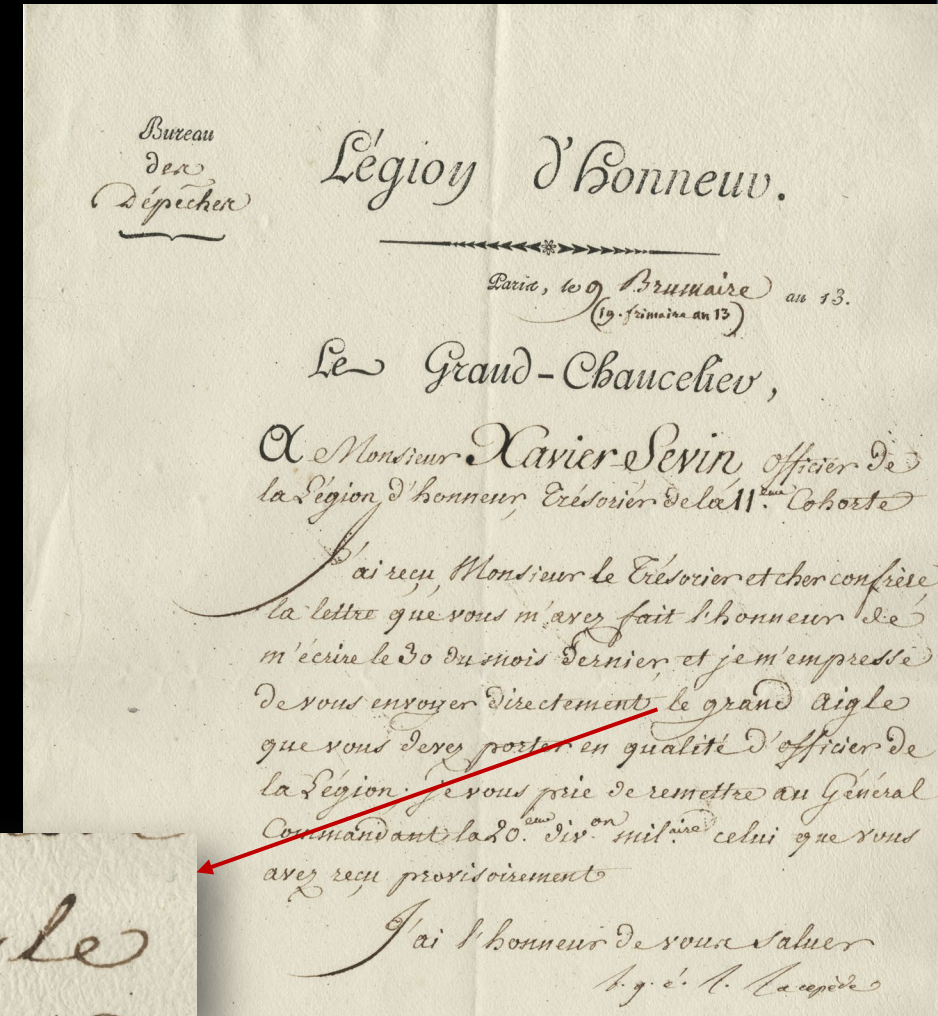 Bureau
des
Dépêches
Légion d'Honneur.
Paris, le 9 Brumaire an 13.
(19. frimaire an 13)
Le Grand-Chancelier,
A Monsieur Xavier-Sevin, officier de
la Légion d'honneur, Trésorier de la 11.eme Cohorte
J'ai reçu, Monsieur le Trésorier et cher confrère
la lettre que vous m'avez fait l'honneur de
m'écrire le 30 du mois dernier, et je m'empresse
de vous envoyer directement, le grand aigle
que vous devez porter en qualité d'officier de
la Légion. je vous prie de remettre au Général
Commandant la 20.eme div.on mil.aire celui que vous
avez reçu provisoirement
le
J'ai l'honneur de vous saluer
b. g. é. l. Lacepède